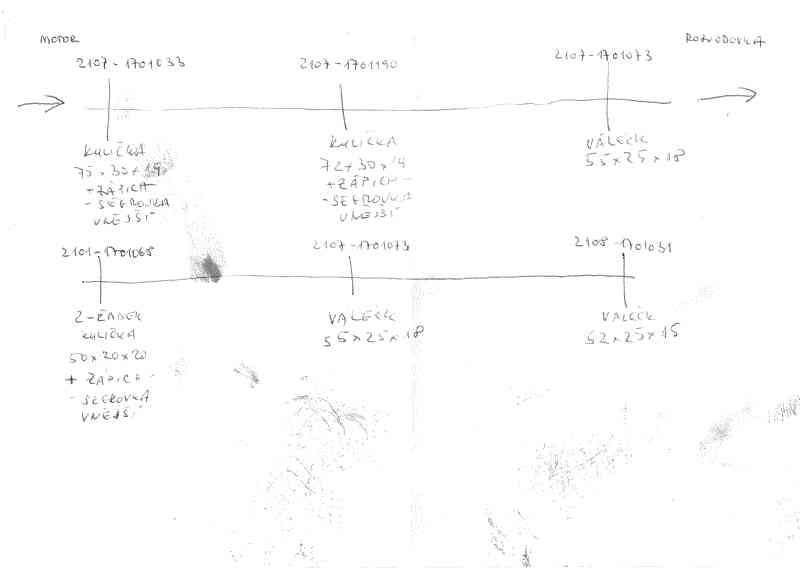 MOTOR
ROZVODOVKA
2107-1701033
2107-1701190
2107-1701073
KULIČKA
75x30x19
+ZÁPICH
-SEGROVKA
VNEJŠÍ
KULIČKA
72x30x19
+ZÁPICH-
-SEGROVKA
VNEJŠÍ
VÁLEČK
55x25x18
2101-1701068
2107-1701073
2108-1701031
2-ŽADEK
KULIČKA
50x20x20
+ ZÁPICH-
-SEGROVKA
VNEJŠÍ
VALEČK
55x25x18
VALEČK
52x25x15